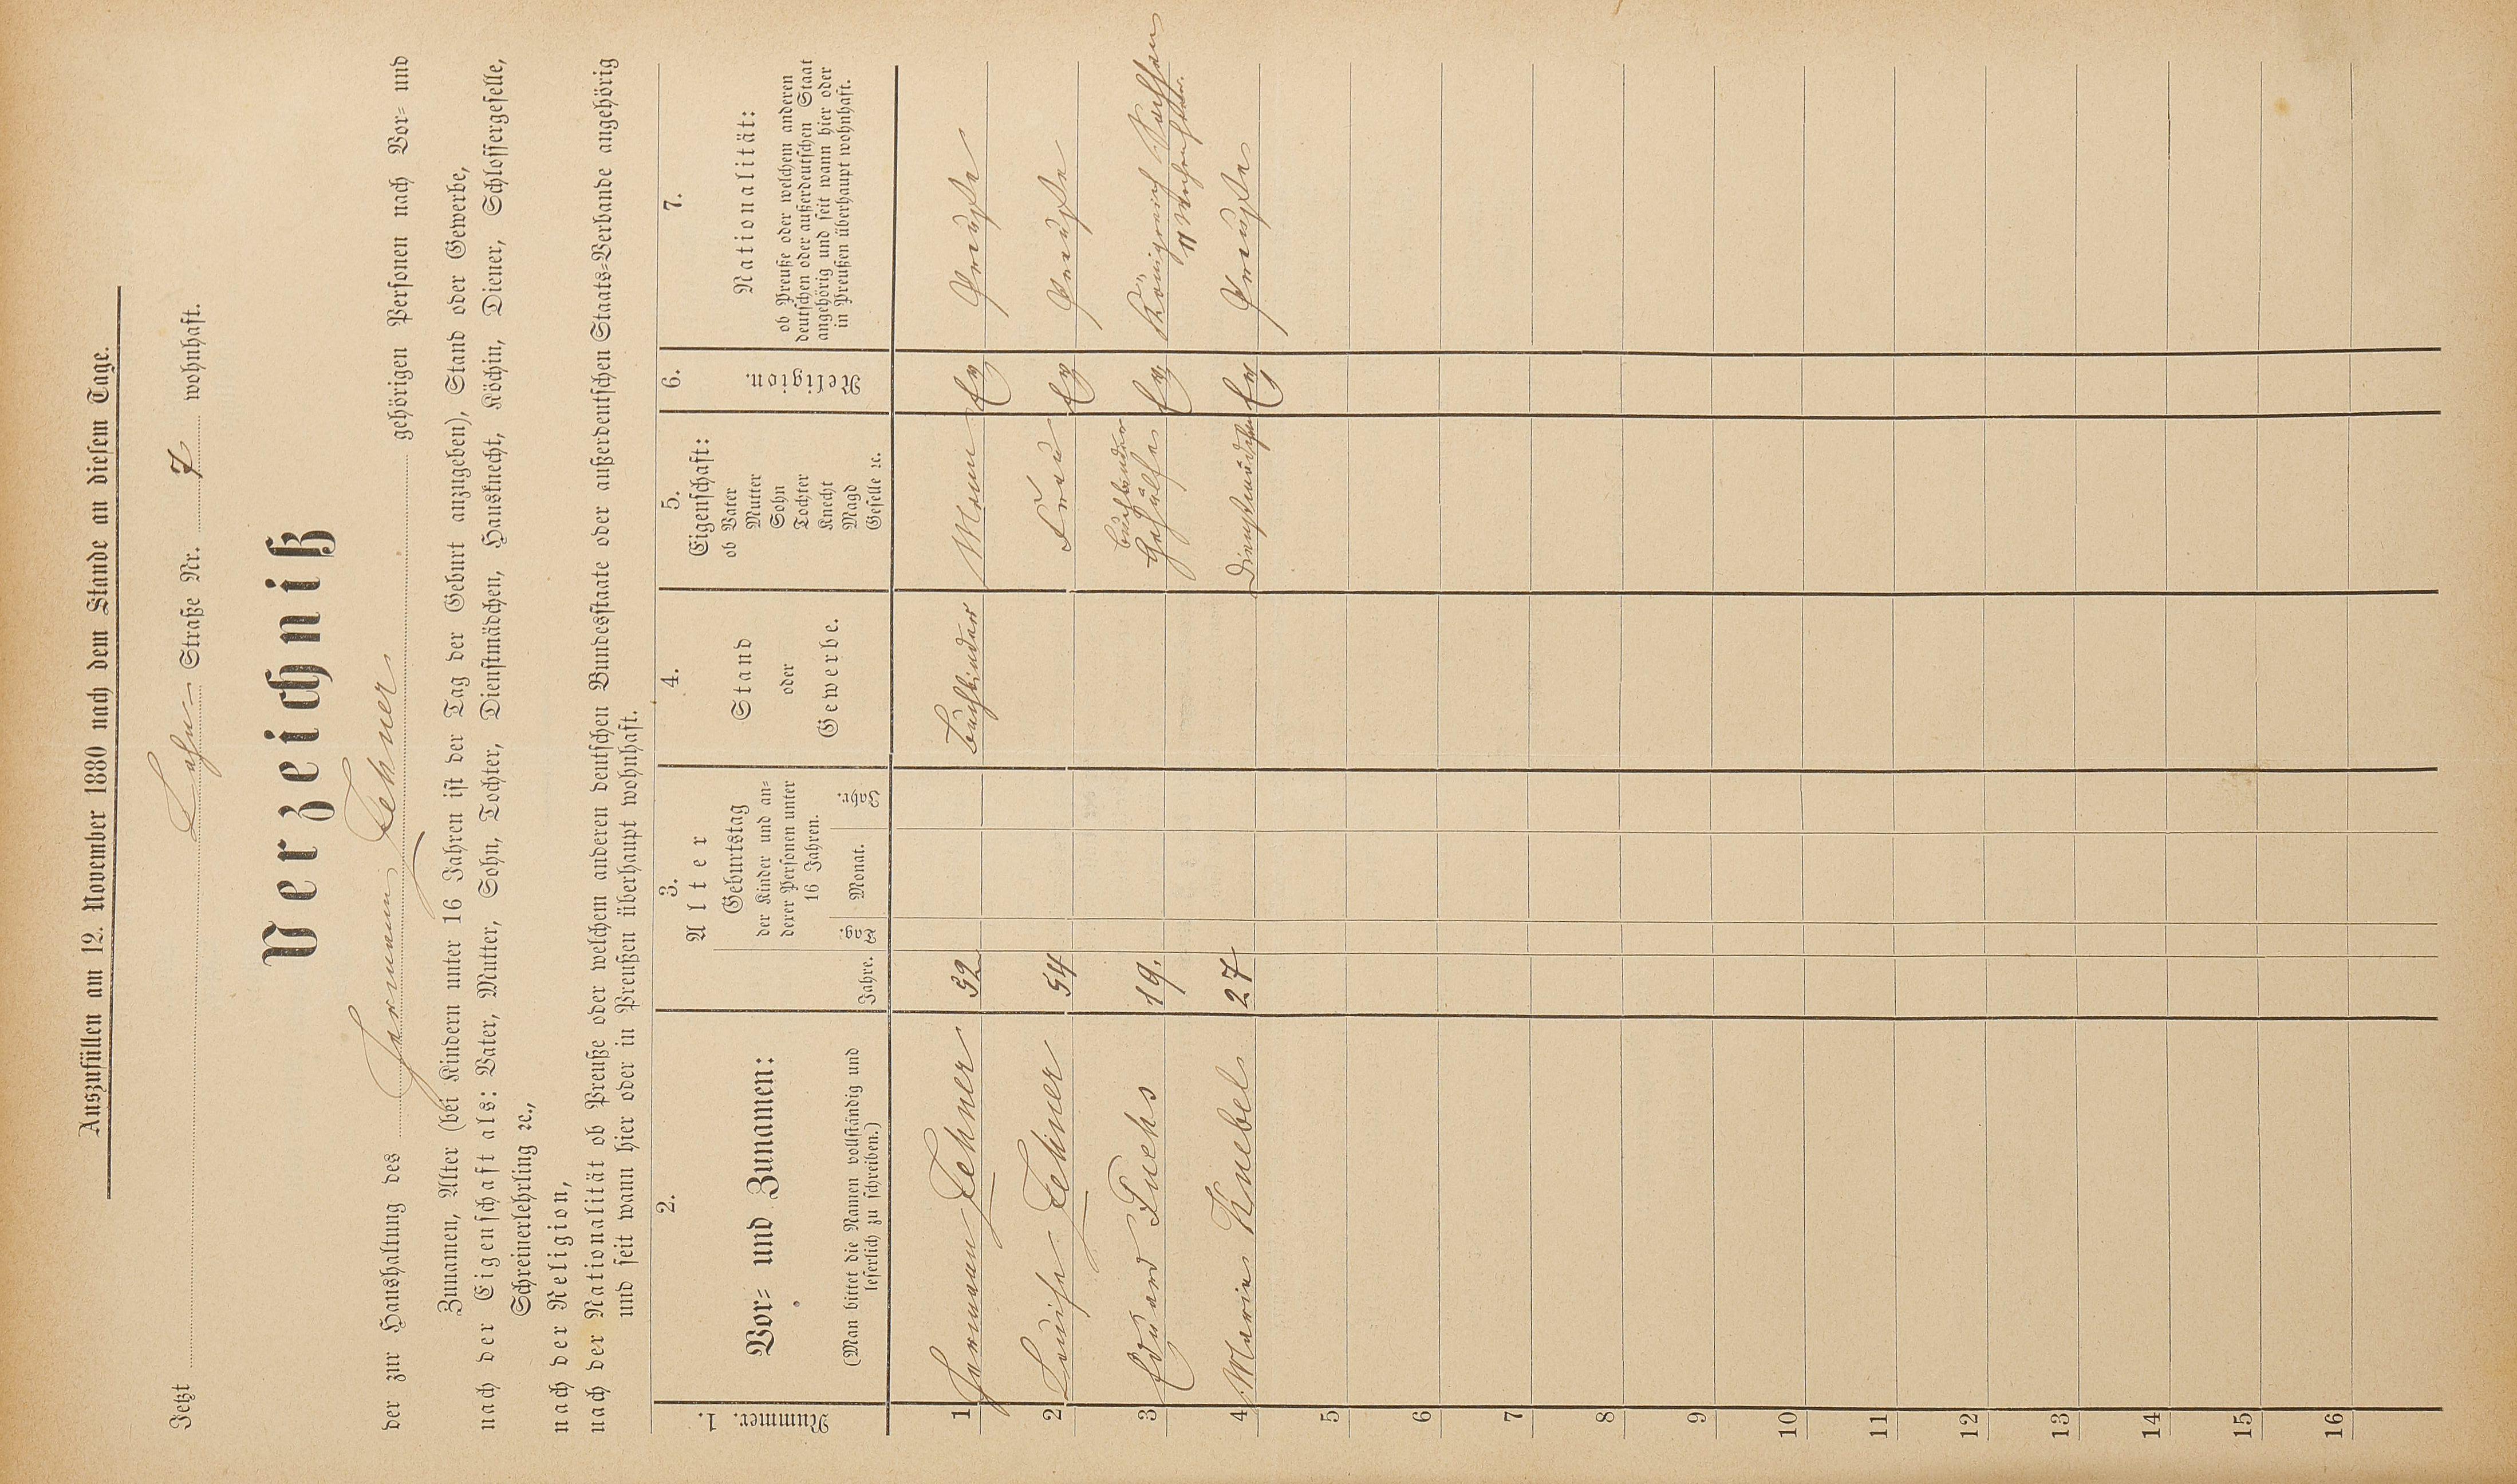 Auszufüllen am 12. November 1880 nach dem Stande an diesem Tage.
Jetzt Lahn Straße Nr. 7 wohnhaft.
Verzeichniß
der zur Haushaltung des Hermann Fehner gehörigen Personen nach Vor- und
Zunamen, Alter (bei Kindern unter 16 Jahren ist der Tag der Geburt anzugeben), Stand oder Gewerbe,
nach der Eigenschaft als: Vater, Mutter, Sohn, Tochter, Dienstmädchen, Hausknecht, Köchin, Diener, Schlossergeselle,
Schreinerlehrling ꝛc.,
nach der Religion,
nach der Nationalität ob Preuße oder welchem anderen deutschen Bundesstaate oder außerdeutschen Staats-Verbande angehörig
und seit wann hier oder in Preußen überhaupt wohnhaft.
Nummer. 1.
2.
Vor- und Zunamen:
(Man bittet die Namen vollständig und
leserlich zu schreiben.)
3.
Alter
Jahre.
Geburtstag
der Kinder und an-
derer Personen unter
16 Jahren.
Tag. Monat. Jahr.
4.
Stand
oder
Gewerbe.
5.
Eigenschaft:
ob Vater
Mutter
Sohn
Tochter
Knecht
Magd
Geselle ꝛc.
6.
Religion.
7.
Nationalität:
ob Preuße oder welchem anderen
deutschen oder außerdeutschen Staat
angehörig und seit wann hier oder
in Preußen überhaupt wohnhaft.
1 Hermann Fehner 52 Buchbinder Mann Ev Preuße
2 Louise Fehner 54 Frau Ev Preuße
3 Eduard Puchs 19. Buchbinder Gehülfe Ev Königreich Sachsen
11 Wochen hier.
4 Marie Knebel 27 Dienstmädchen Ev Preuße
5
6
7
8
9
10
11
12
13
14
15
16